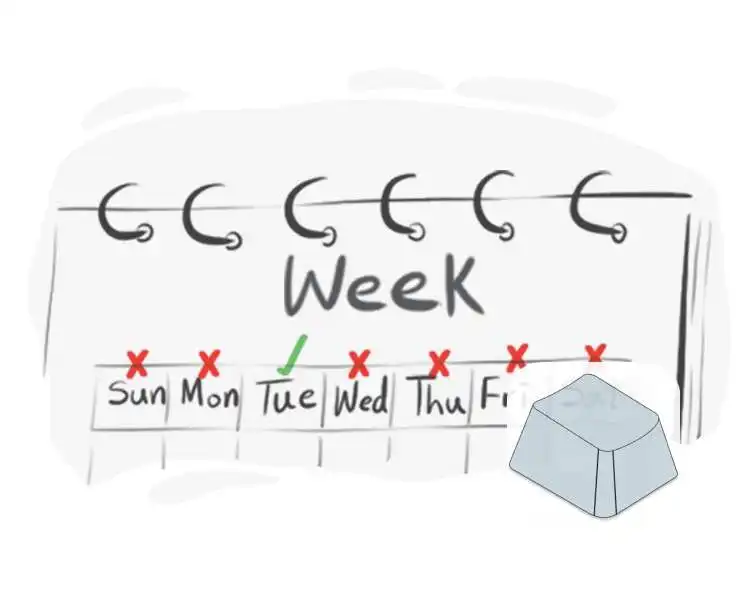 Week
Sun Mon Tue Wed Thu Fri